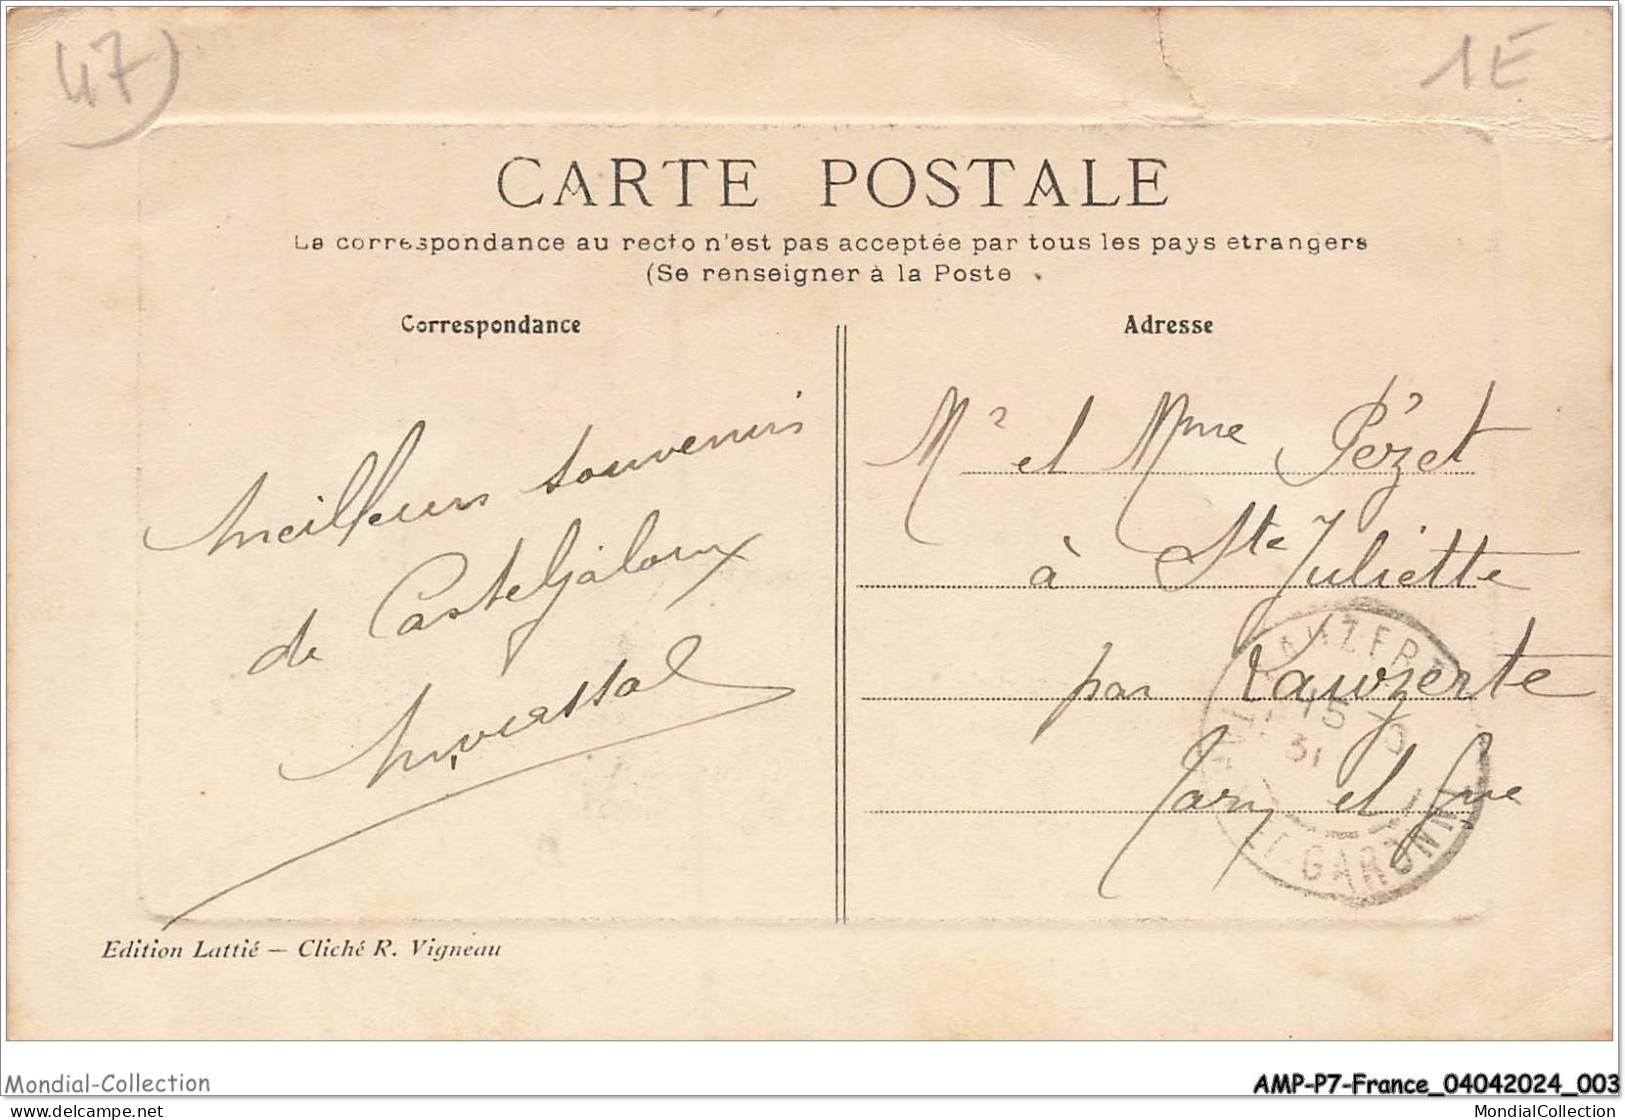 47)
1E
CARTE POSTALE
La correspondance au recto n'est pas acceptée par tous les pays etrangers
(Se renseigner à la Poste
Correspondance
Adresse
Meilleurs souvenirs
de Casteljaloux
Mr et Mme Pézet
à Ste Juliette
par Lauzerte
Tarn et Gne
LAUZERTE
15
31
ET-GARONNE
Edition Lattié — Cliché R. Vigneau
Mondial-Collection
AMP-P7-France_04042024_003
www.delcampe.net
MondialCollection